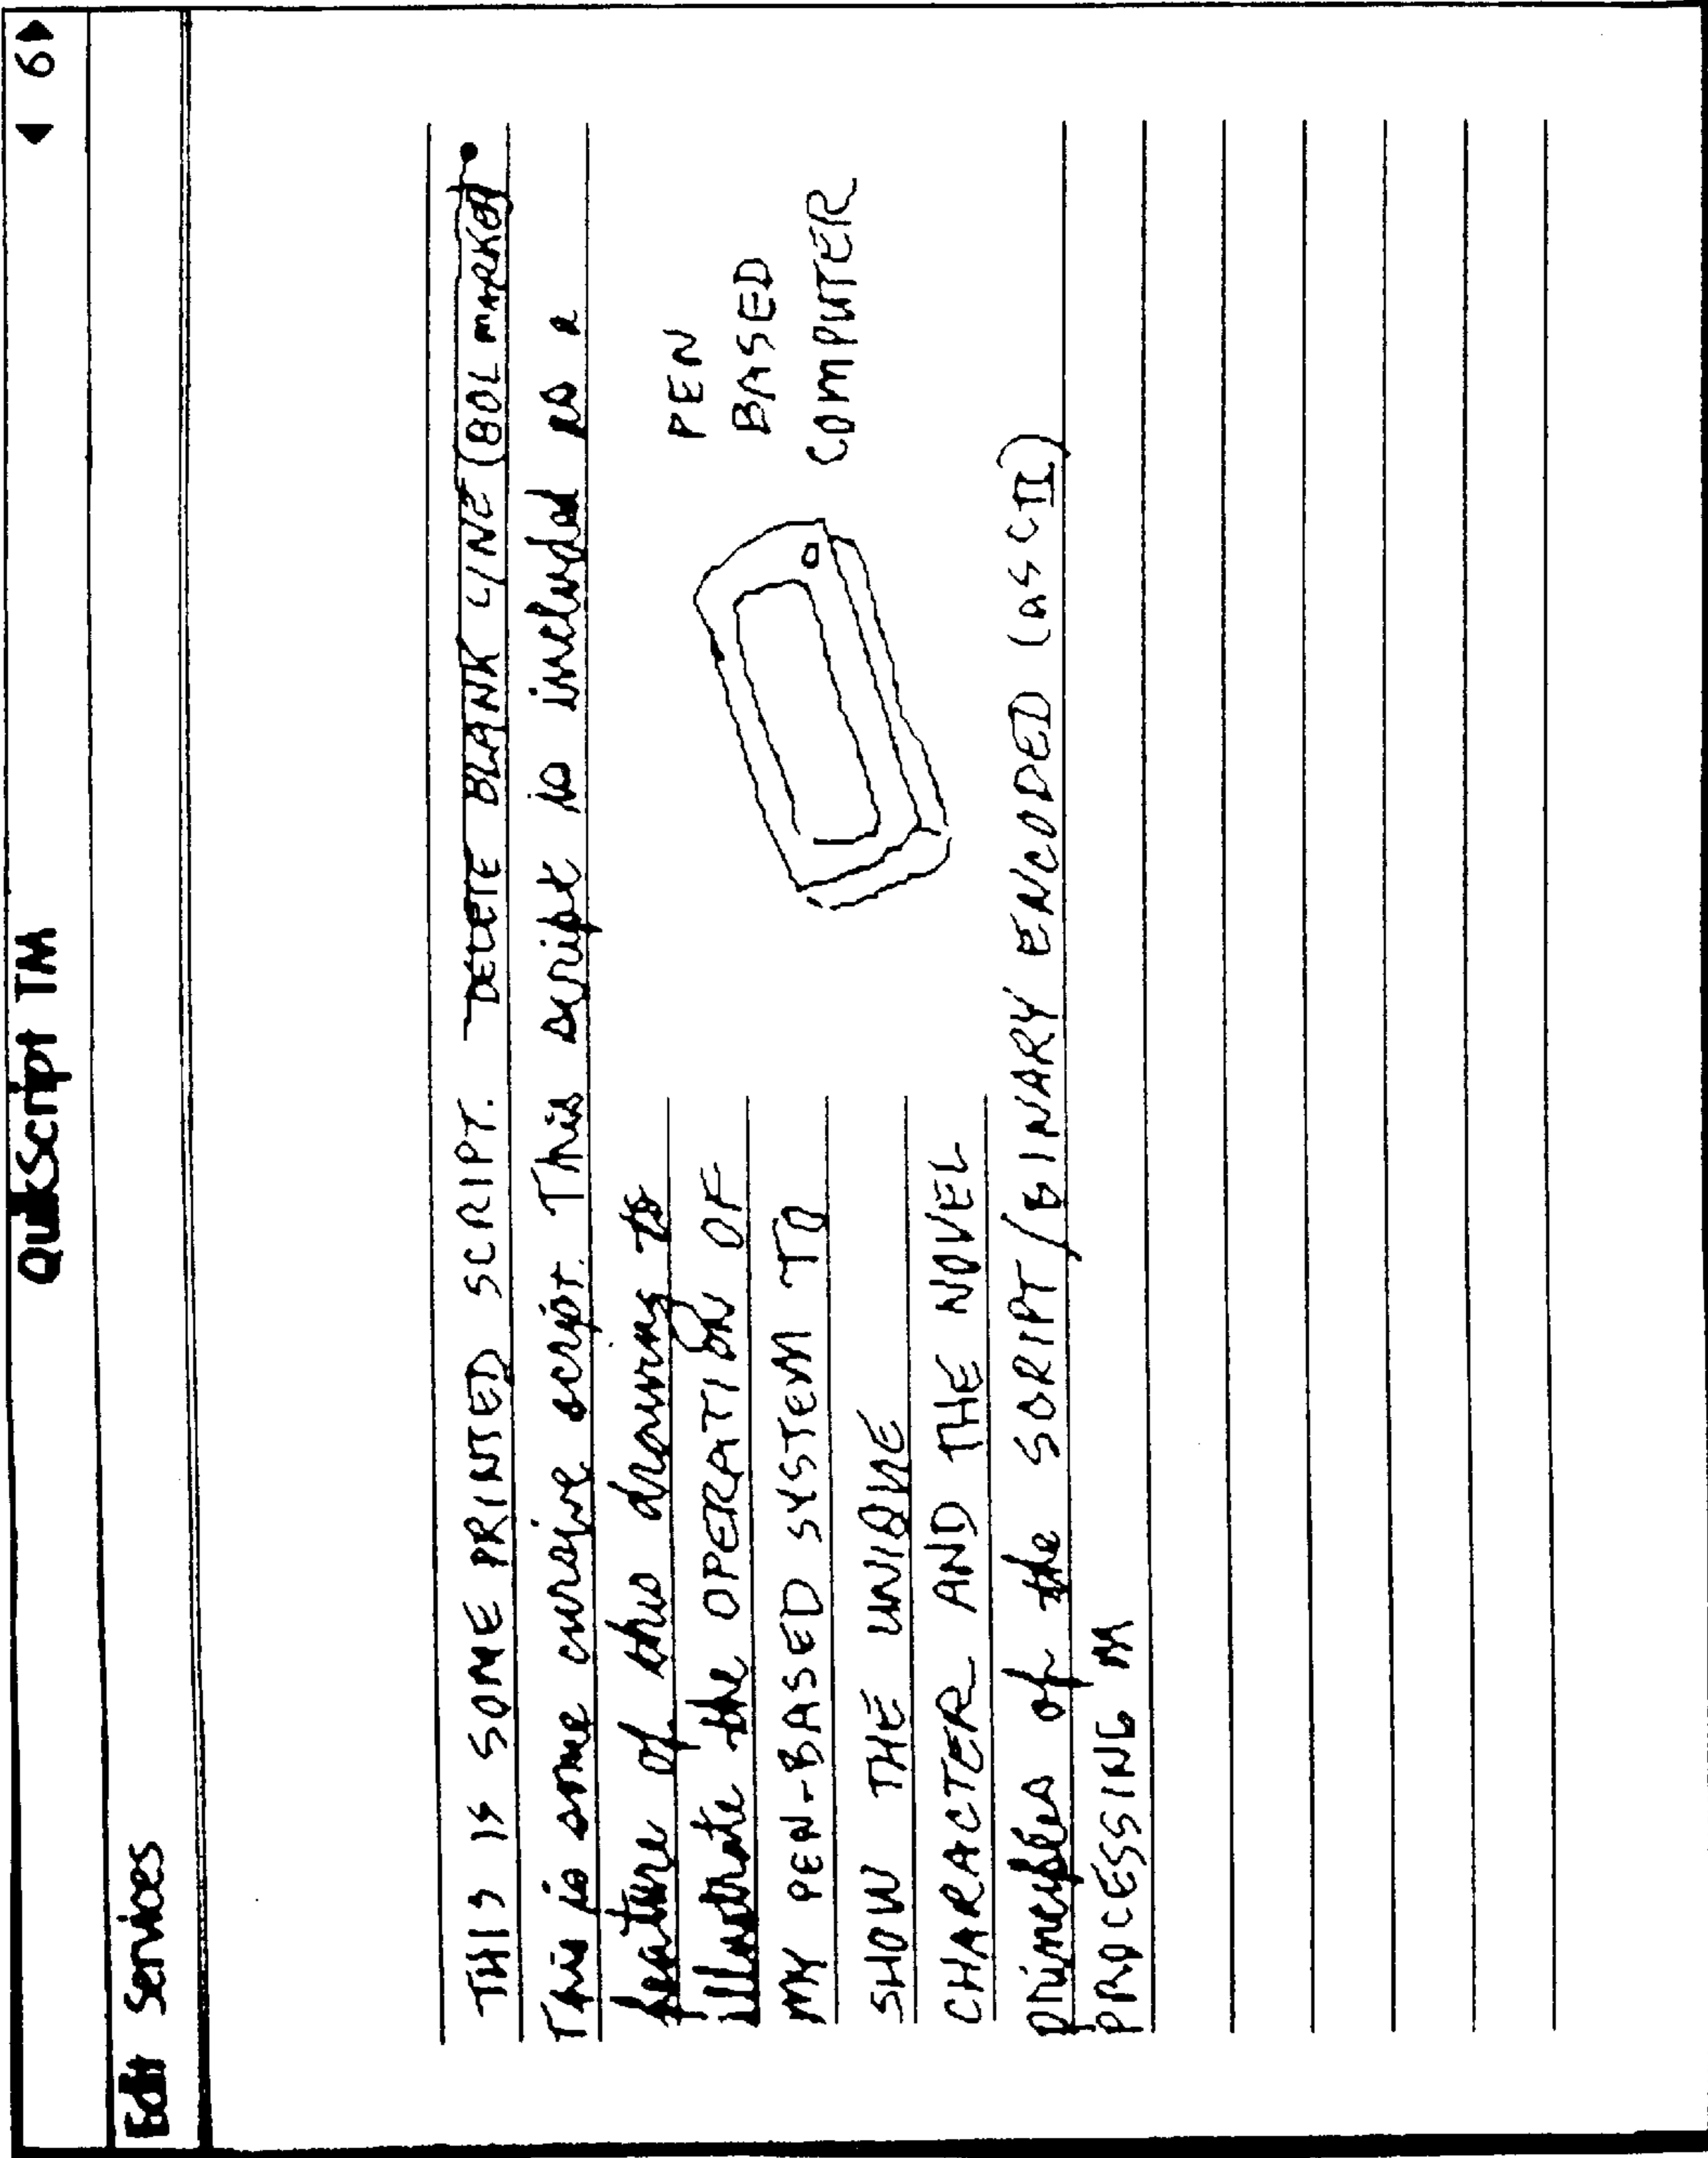 QuikScript TM
◀ 6 ▶
Edit Services
THIS IS SOME PRINTED SCRIPT. DELETE BLANK LINE (BOL MARKER
This is some cursive script. This script is included as a
feature of this drawing to
illustrate the OPERATION OF
MY PEN-BASED SYSTEM TO
SHOW THE UNIQUE
CHARACTER AND THE NOVEL
principles of the SCRIPT/BINARY ENCODED (ASCII)
PROCESSING M
PEN
BASED
COMPUTER